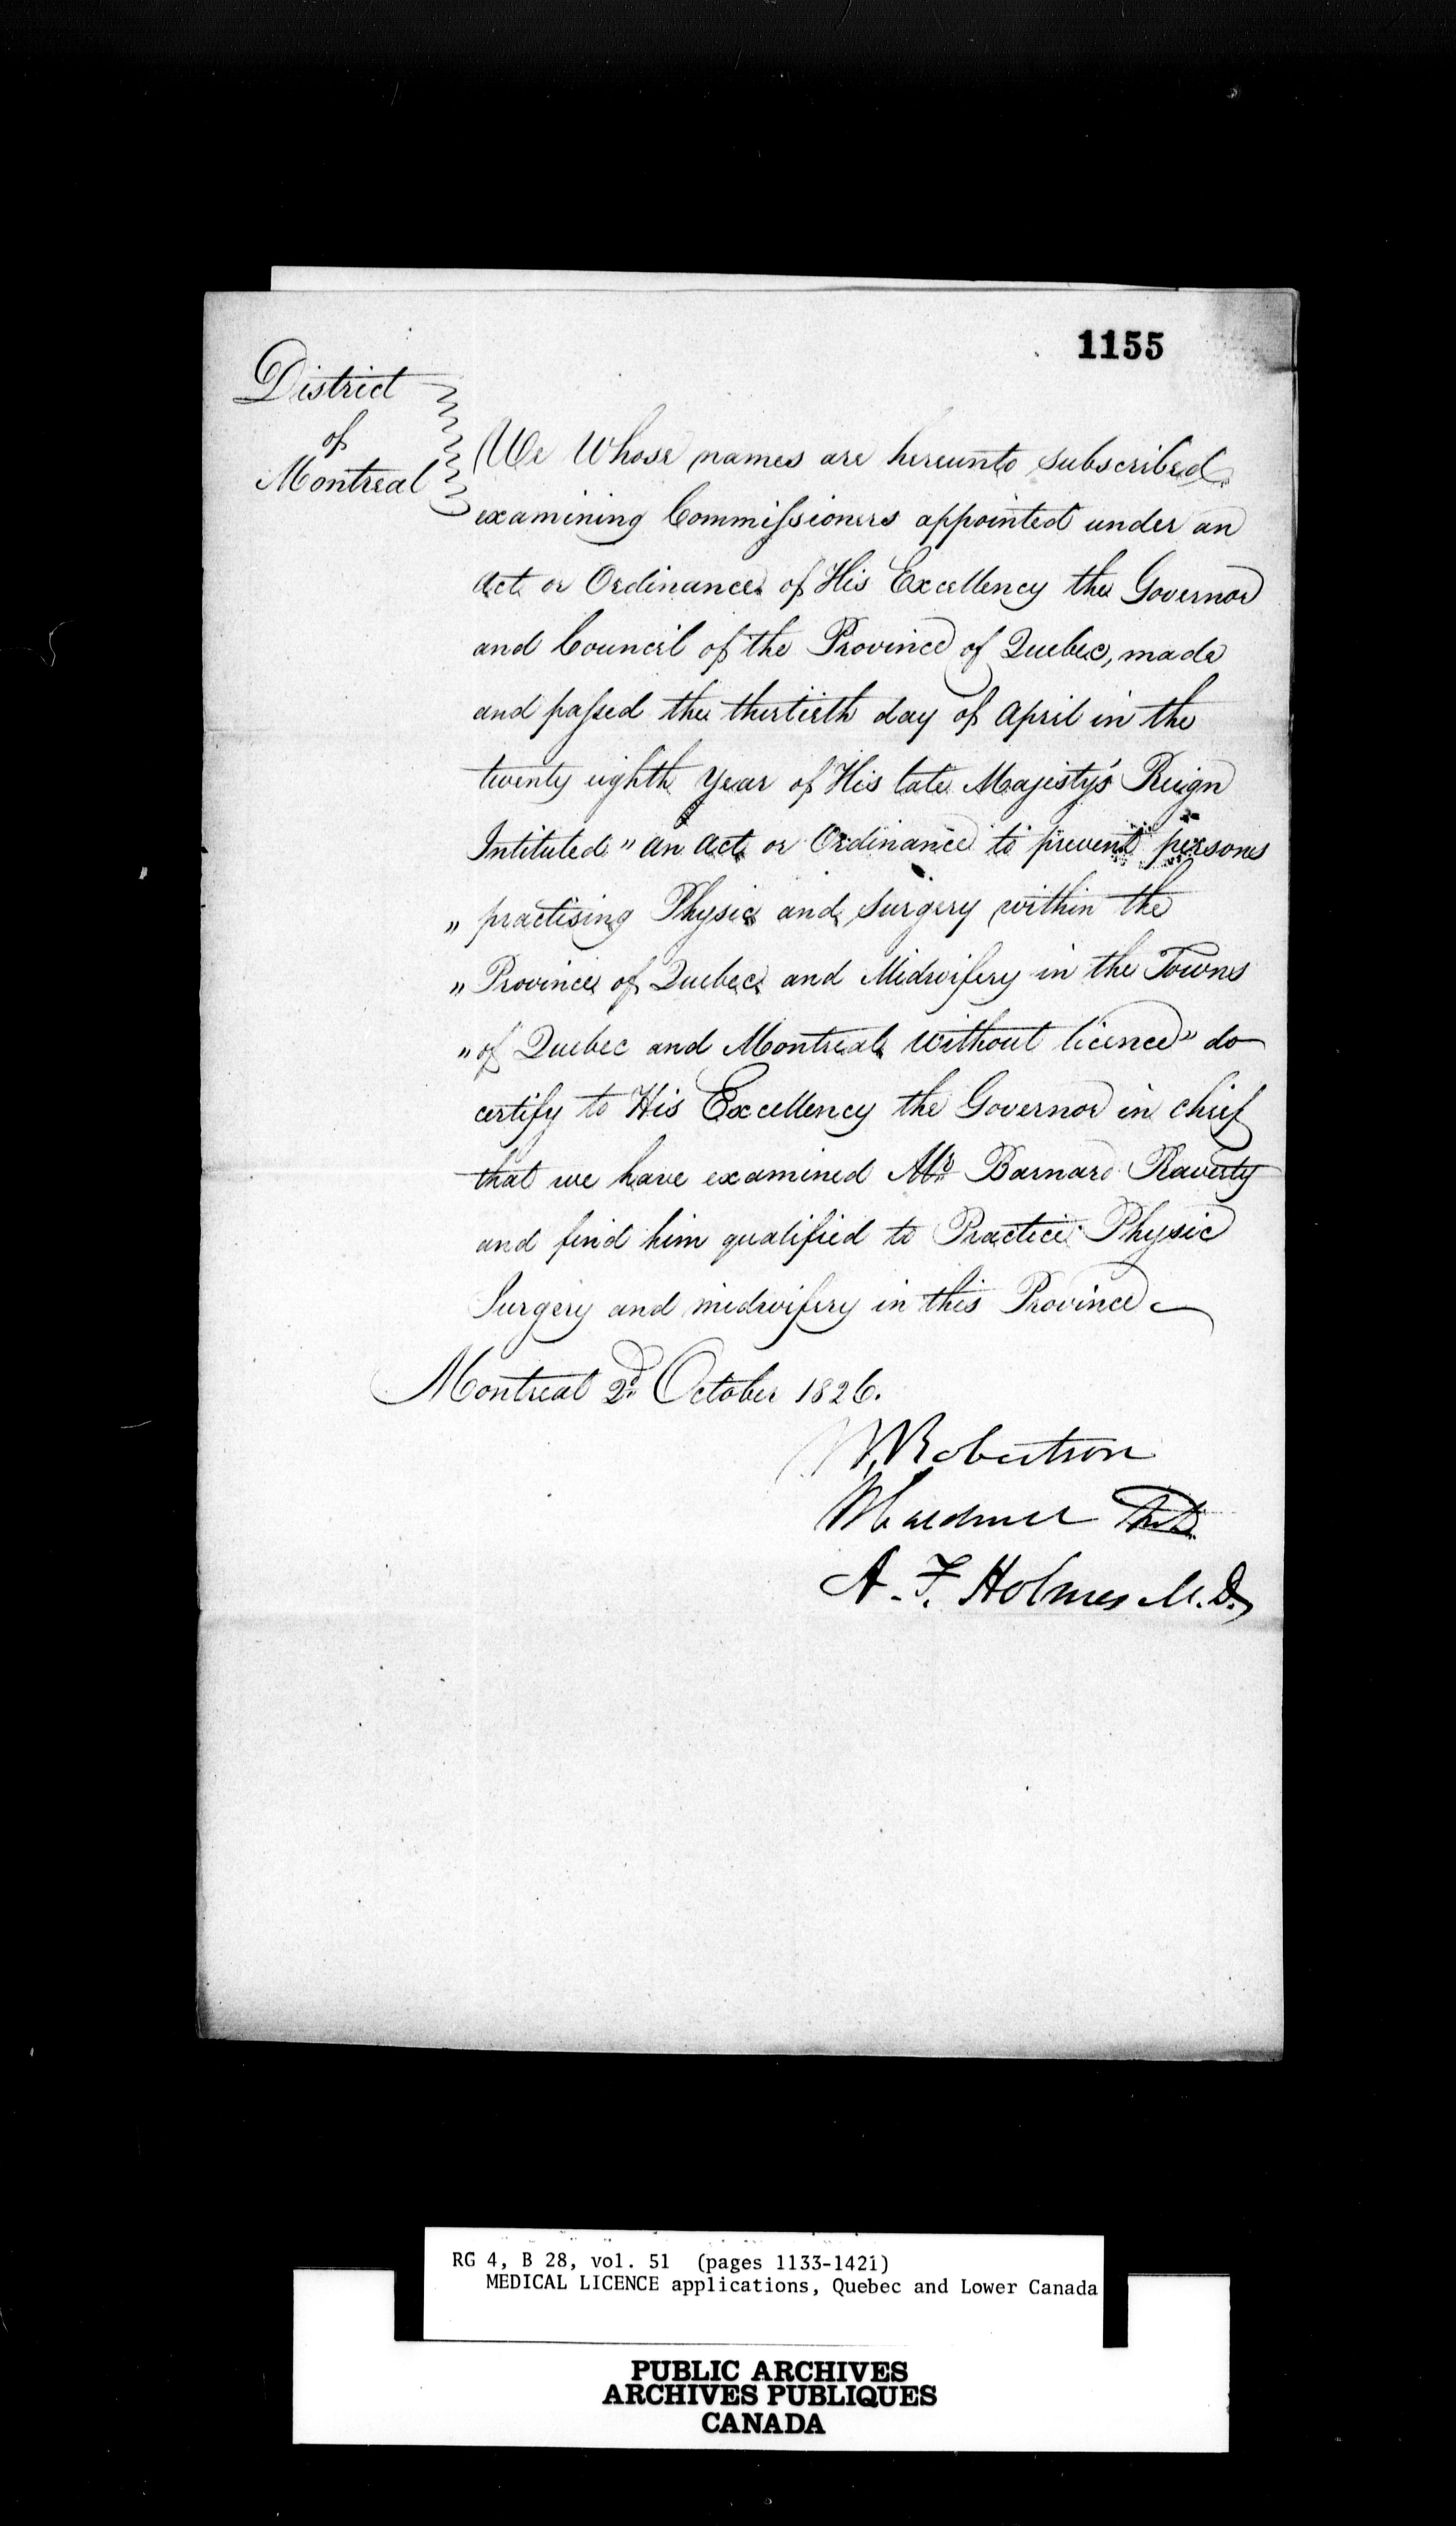 1155
District
of
Montreal
We Whose names are hereunto subscribed
examining Commissioners appointed under an
Act or Ordinance of His Excellency the Governor
and Council of the Province of Quebec, made
and passed the thirtieth day of April in the
twenty eighth Year of His late Majesty's Reign
Intituled " An Act or Ordinance to prevent persons
" practising Physic and Surgery within the
" Province of Quebec and Midwifery in the Towns
" of Quebec and Montreal without licence" do
certify to His Excellency the Governor in chief
that we have examined Mr Barnard Raverty
and find him qualified to Practice Physic
Surgery and midwifery in this Province
Montreal 2d October 1826.
W Robertson
MD
A. F. Holmes M.D.
RG 4, B 28, vol. 51 (pages 1133-1421)
MEDICAL LICENCE applications, Quebec and Lower Canada
PUBLIC ARCHIVES
ARCHIVES PUBLIQUES
CANADA